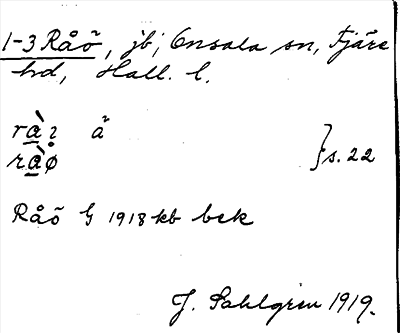 1-3 Råö, jb; Onsala sn, Fjäre
hd, Hall. l.
rà
ràø } s. 22
Råö 1918 kb bek
J. Sahlgren 1919.